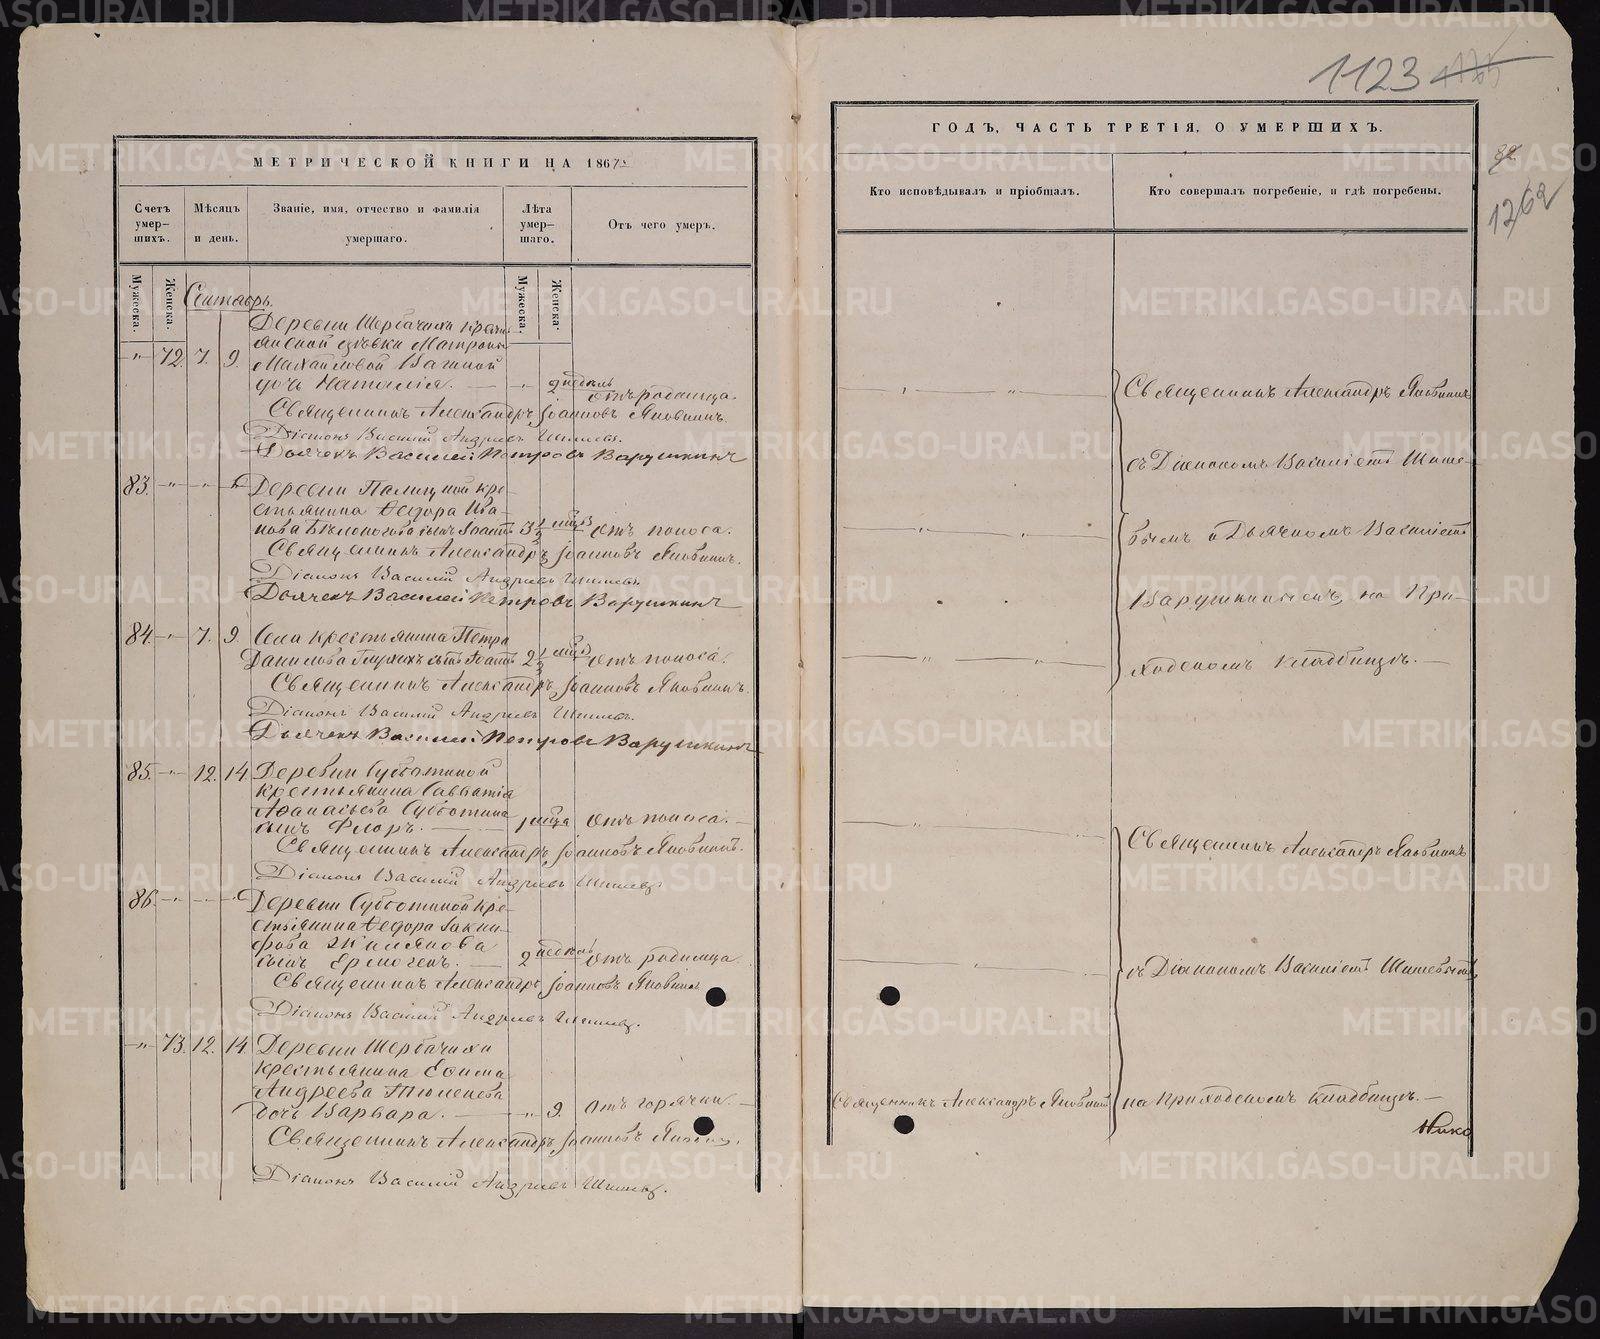 МЕТРИЧЕСКОЙ КНИГИ НА 1867
Счетъ умер-
шихъ.
Мѣсяцъ
и день.
Званіе, имя, отчество и фамилія
умершаго.
Лѣта
умер-
шаго.
Отъ чего умеръ.
Мужеска.
Женска.
Мужеска.
Женска.
Сентябрь.
Деревни Щербачихи кресть
янской дѣвки Матроны
" 72. 7. 9. Михайловой Вагиной
дочь Наталія. — " 2 недѣль отъ родимца.
Священникъ Александръ Іоанновъ Яковкинъ.
Діаконъ Василій Андреевъ Шишевъ.
Дьячекъ Василей Петровъ Варушкинъ
83. " " " Деревни Палкиной кре-
стьянина Ѳедора Ива-
нова Бѣлоногова сынъ Іоаннъ 3½ мѣс. отъ поноса.
Священникъ Александръ Іоанновъ Яковкинъ.
Діаконъ Василій Андреевъ Шишевъ.
Дьячекъ Василей Петровъ Варушкинъ
84. " 7. 9. Села крестьянина Петра
Данилова Глухихъ сынъ Іоаннъ 2½ мѣс. отъ поноса.
Священникъ Александръ Іоанновъ Яковкинъ.
Діаконъ Василій Андреевъ Шишевъ.
Дьячекъ Василей Петровъ Варушкинъ
85. " 12. 14. Деревни Субботиной
крестьянина Савватія
Аѳанасьева Субботина
сынъ Флоръ. — 1 мѣсяца отъ поноса.
Священникъ Александръ Іоанновъ Яковкинъ.
Діаконъ Василій Андреевъ Шишевъ.
86. " " " Деревни Субботиной кре-
стьянина Ѳедора
сынъ Ермогенъ. — 2 недѣль отъ родимца
Священникъ Александръ Іоанновъ Яковкинъ
Діаконъ Василій Андреевъ Шишевъ.
" 73. 12. 14. Деревни Щербачихи
крестьянина Ефима
Андреева Тюленева
дочь Варвара. — " 9. отъ горячки. —
Священникъ Александръ Іоанновъ Яковкинъ.
Діаконъ Василій Андреевъ Шишевъ.
1123
ГОДЪ, ЧАСТЬ ТРЕТІЯ, О УМЕРШИХЪ.
1262
Кто исповѣдывалъ и пріобщалъ.
Кто совершалъ погребеніе, и гдѣ погребены.
Священникъ Александръ Яковкинъ
съ Діакономъ Василіемъ Шише-
вымъ и Дьячкомъ Василіемъ
Варушкинымъ, на При-
ходскомъ кладбищѣ. —
Священникъ Александръ Яковкинъ
съ Діакономъ Василіемъ Шишевымъ
Священникъ Александръ Яковкинъ
на приходскомъ кладбищѣ. —
Нико
METRIKI.GASO-URAL.RU